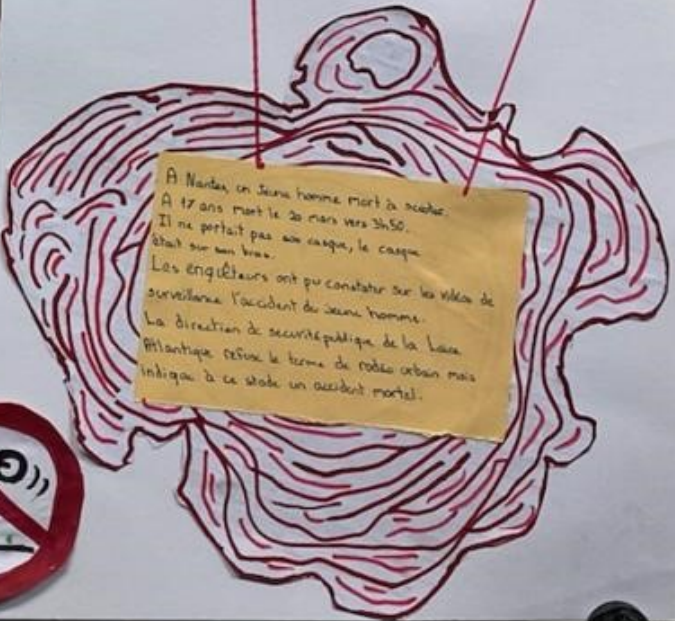 A Nantes, un Jeune homme mort à scooter.
A 17 ans mort le 20 mars vers 3h50.
Il ne portait pas son casque, le casque
était sur son bras.
Les enquêteurs ont pu constater sur les vidéos de
surveillance l'accident du jeune homme.
La direction de securité publique de la Loire
Atlantique refuse le terme de rodéo urbain mais
indique à ce stade un accident mortel.